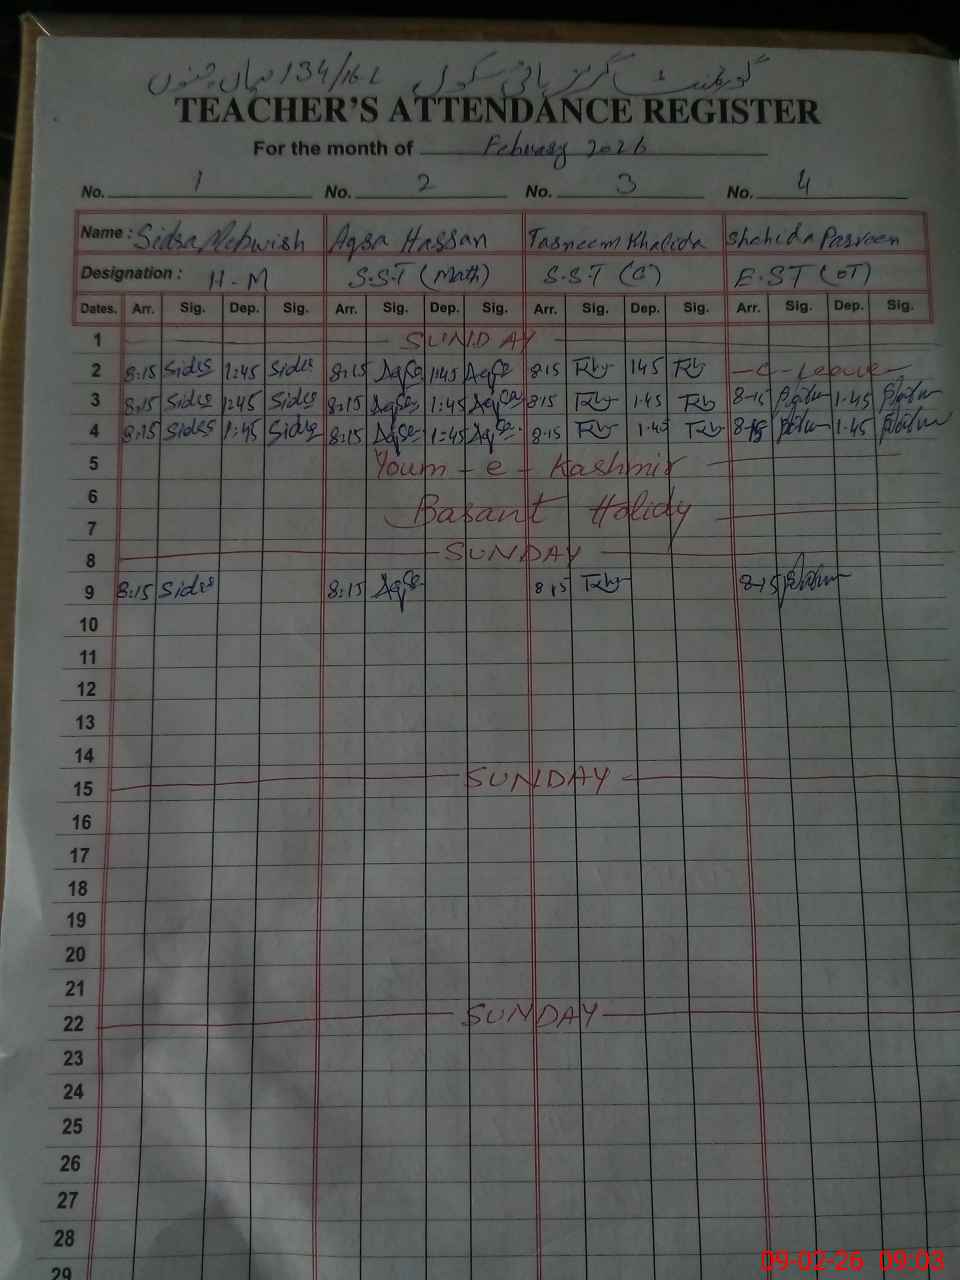 گورنمنٹ گرلز ہائی سکول 134/16-L میاں چنوں
TEACHER'S ATTENDANCE REGISTER
For the month of February 2026
No. 1 No. 2 No. 3 No. 4
Name : Sidra Mehwish Aqsa Hassan Tasneem Khalida Shahida Parveen
Designation : H-M S.S.T (Math) S.S.T (C) E.S.T (OT)
Dates. Arr. Sig. Dep. Sig. Arr. Sig. Dep. Sig. Arr. Sig. Dep. Sig. Arr. Sig. Dep. Sig.
1 SUNDAY
2 8:15 1:45 8:15 1:45 8:15 1:45 -C-Leave-
3 8:15 1:45 8:15 1:45 8:15 1.45 8-15 1.45
4 8:15 1:45 8:15 1:45 8.15 1.45 8-15 1.45
5 Youm-e-Kashmir
6
Basant Holidy
7
8 SUNDAY
9 8:15 8:15 8:15 8-15
10
11
12
13
14
15 SUNDAY
16
17
18
19
20
21
22 SUNDAY
23
24
25
26
27
28
29
09-02-26 09:03